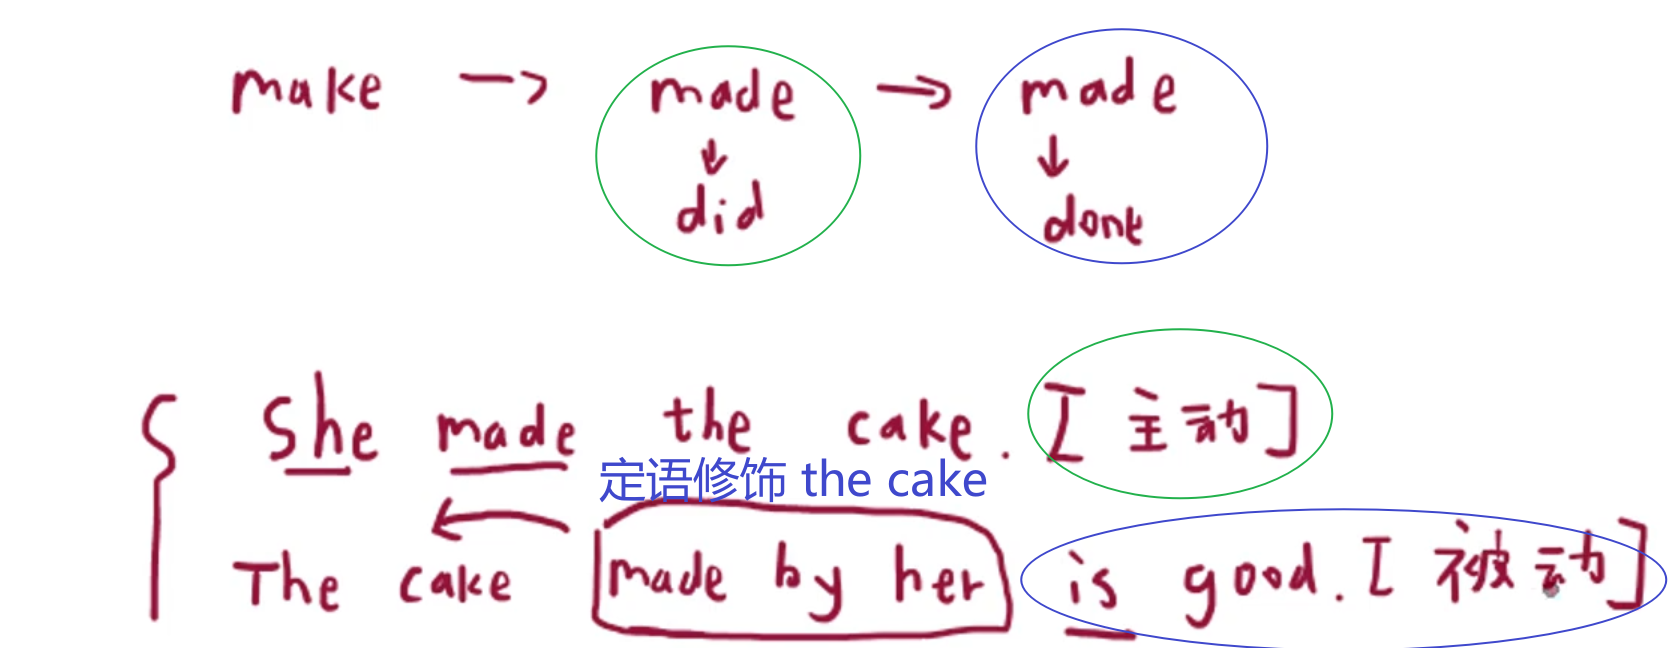 make → made → made
↓ ↓
did done
She made the cake. [主动]
定语修饰 the cake
The cake made by her is good. [被动]